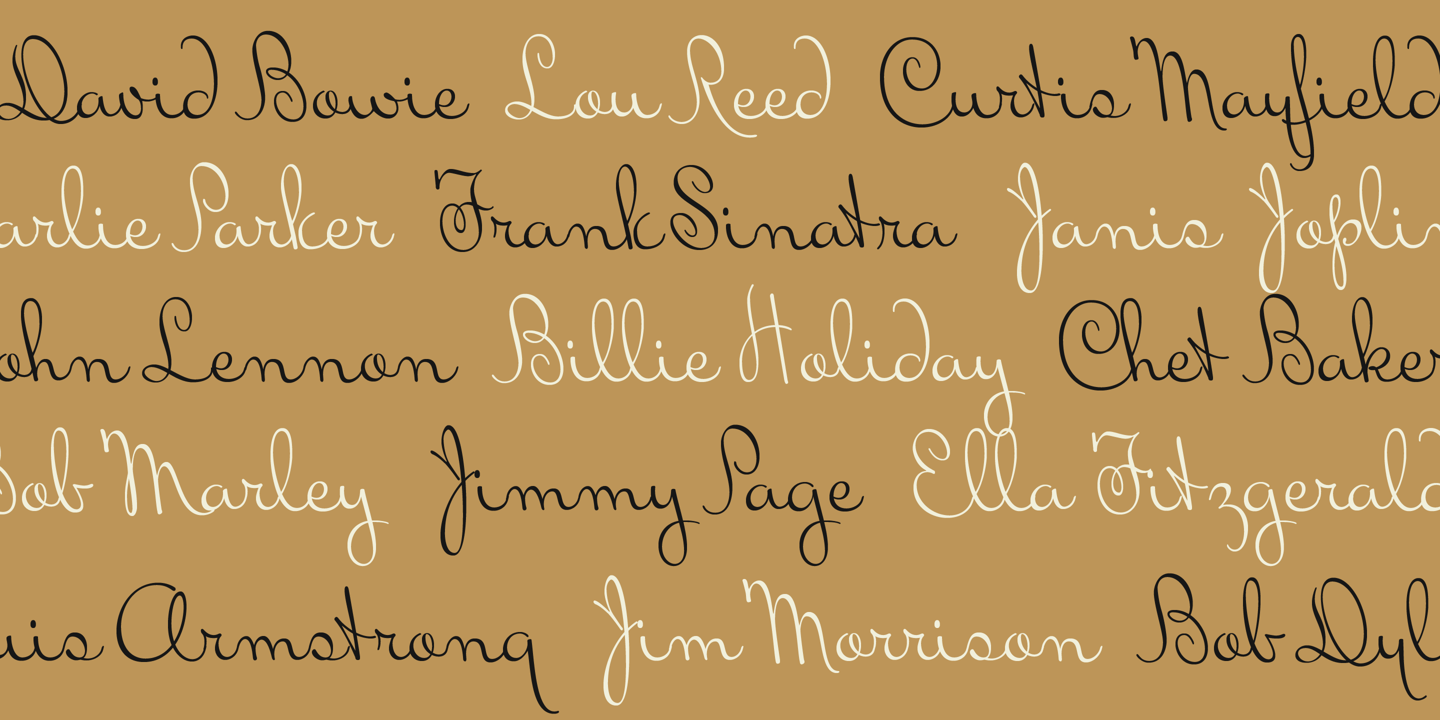 David Bowie Lou Reed Curtis Mayfield
arlie Parker Frank Sinatra Janis Joplin
ohn Lennon Billie Holiday Chet Baker
Bob Marley Jimmy Page Ella Fitzgerald
uis Armstrong Jim Morrison Bob Dyl